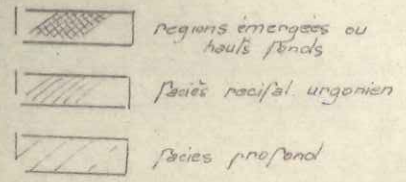 regions émergées ou
hauts fonds
faciès recifal urgonien
facies profond